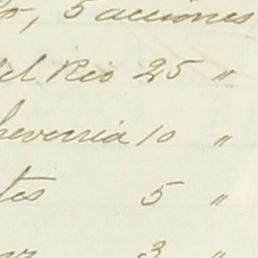 5 acciones
del Rio 25 "
heverria 10 "
tes 5 "
3 "